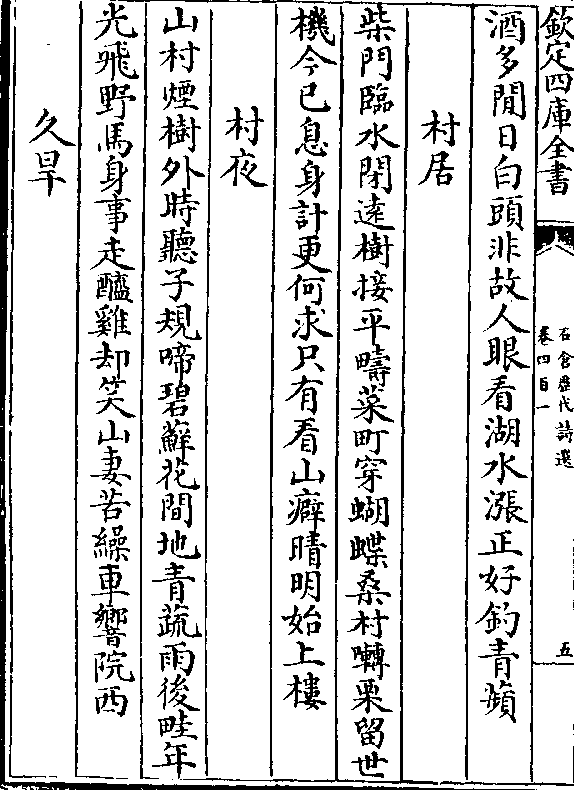 欽定四庫全書
石倉歷代詩選
卷四百一
五
酒多閒日白頭非故人眼看湖水漲正好釣青蘋
村居
柴門臨水閉遠樹接平疇菜町穿蝴蝶桑村囀栗留世
機今已息身計更何求只有看山癖晴明始上樓
村夜
山村煙樹外時聽子規啼碧蘚花間地青蔬雨後畦年
光飛野馬身事走醯雞却笑山妻苦繰車響院西
久旱